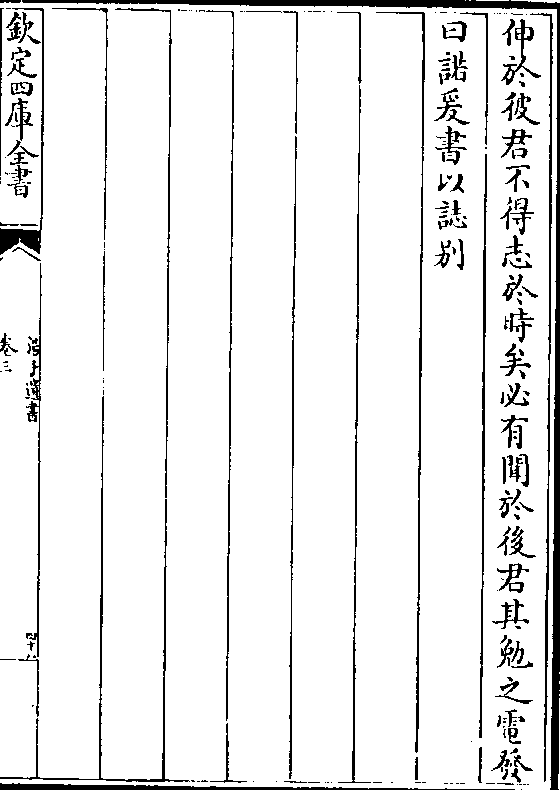 伸於彼君不得志於時矣必有聞於後君其勉之電發
曰諾爰書以誌別
欽定四庫全書
卷三